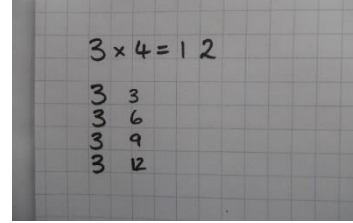 3 × 4 = 1 2
3 3
3 6
3 9
3 12